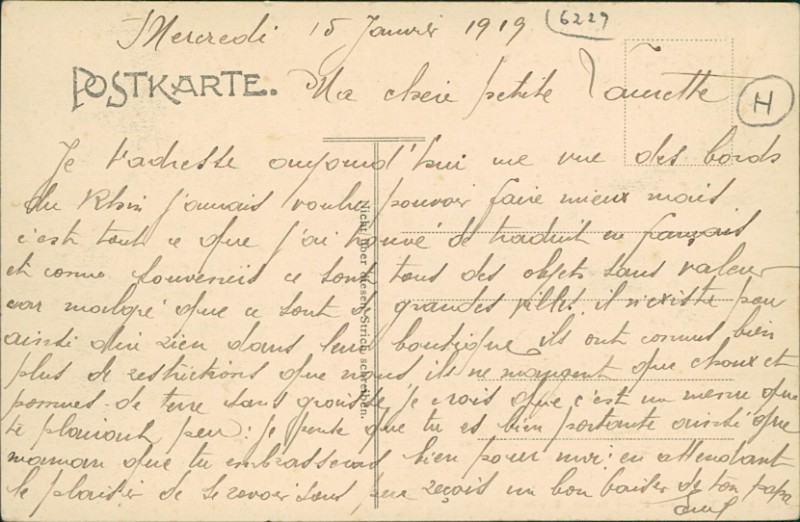 Mercredi 15 Janvier 1919 6229
POSTKARTE. Ma chère petite H
Je t'adresse aujourd'hui une vue des bords
du Rhin j'aurais voulu pouvoir faire mieux mais
c'est tout ce que j'ai trouvé de traduit en français
et comme souvenirs ce sont tous des objets sans valeur
car malgré que ce sont de grandes villes il n'existe pour
ainsi dire rien dans leur boutique ils ont connus bien
plus de restrictions que nous ils ne mangent que choux et
pommes de terre sans graisse je crois que c'est un menu que
te plairait peu: je pense que tu es bien portante ainsi que
maman que tu embrasseras bien pour moi en attendant
le plaisir de te revoir sous peu reçois un bon baiser de ton papa
Nicht über diesen Strich schreiben.